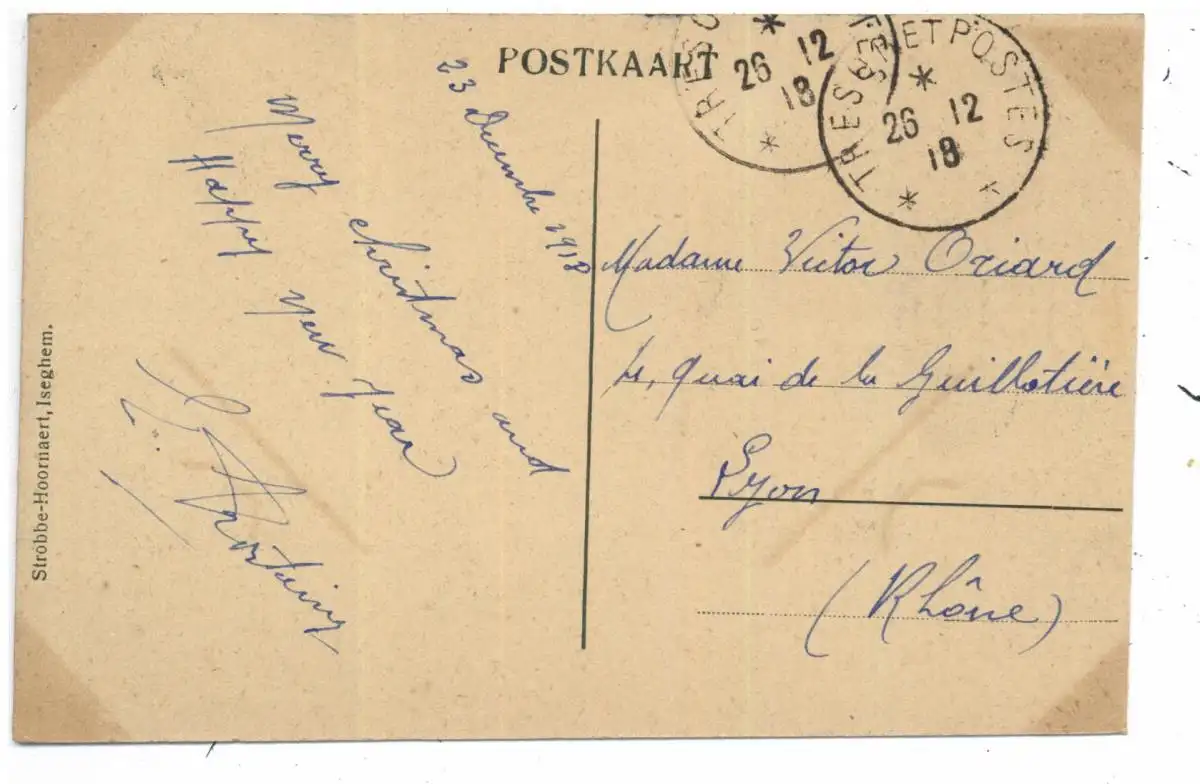 POSTKAART
TRESOR ET POSTES
26 12
18
TRESOR ET POSTES
26 12
18
23 Decembre 1918
Merry christmas and
Happy New Year
Madame Victor Oriard
4, Quai de la Guillotière
Lyon
(Rhône)
Strobbe-Hoornaert, Iseghem.